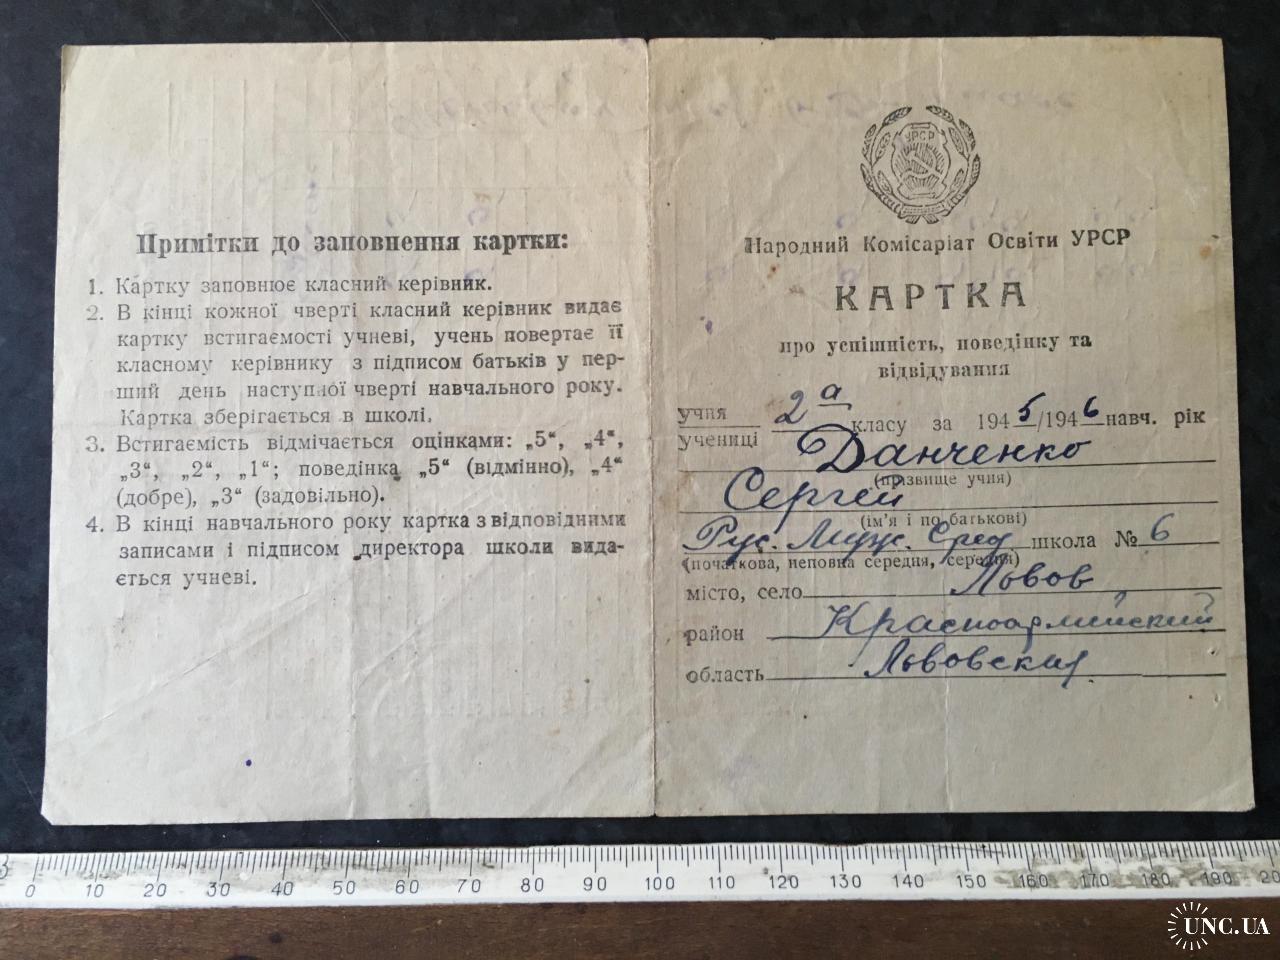 Примітки до заповнення картки:
1. Картку заповнює класний керівник.
2. В кінці кожної чверті класний керівник видає
картку встигаємості учневі, учень повертає її
класному керівнику з підписом батьків у пер-
ший день наступної чверті навчального року.
Картка зберігається в школі.
3. Встигаємість відмічається оцінками: „5“, „4“,
„3“, „2“, „1“; поведінка „5“ (відмінно), „4“
(добре), „3“ (задовільно).
4. В кінці навчального року картка з відповідними
записами і підписом директора школи вида-
ється учневі.
УРСР
Народний Комісаріат Освіти УРСР
КАРТКА
про успішність, поведінку та
відвідування
учня
учениці 2а класу за 1945/1946 навч. рік
Данченко
(прізвище учня)
Сергей
(ім'я і по батькові)
Рус. Сред школа № 6
(початкова, неповна середня, середня)
місто, село Львов
район Красноармийский
область Львовская
0 10 20 30 40 50 60 70 80 90 100 110 120 130 140 150 160 170 180 190 20
UNC.UA